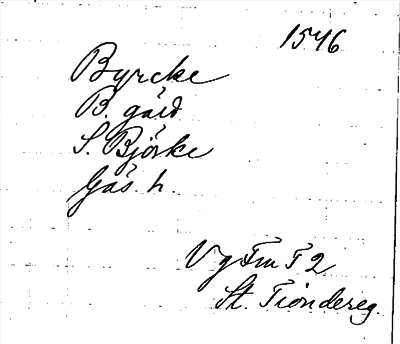 1546
Byrcke
B. gård
S. Björke
Gäs. h.
Vg Fm T 2
St. Tiondereg.